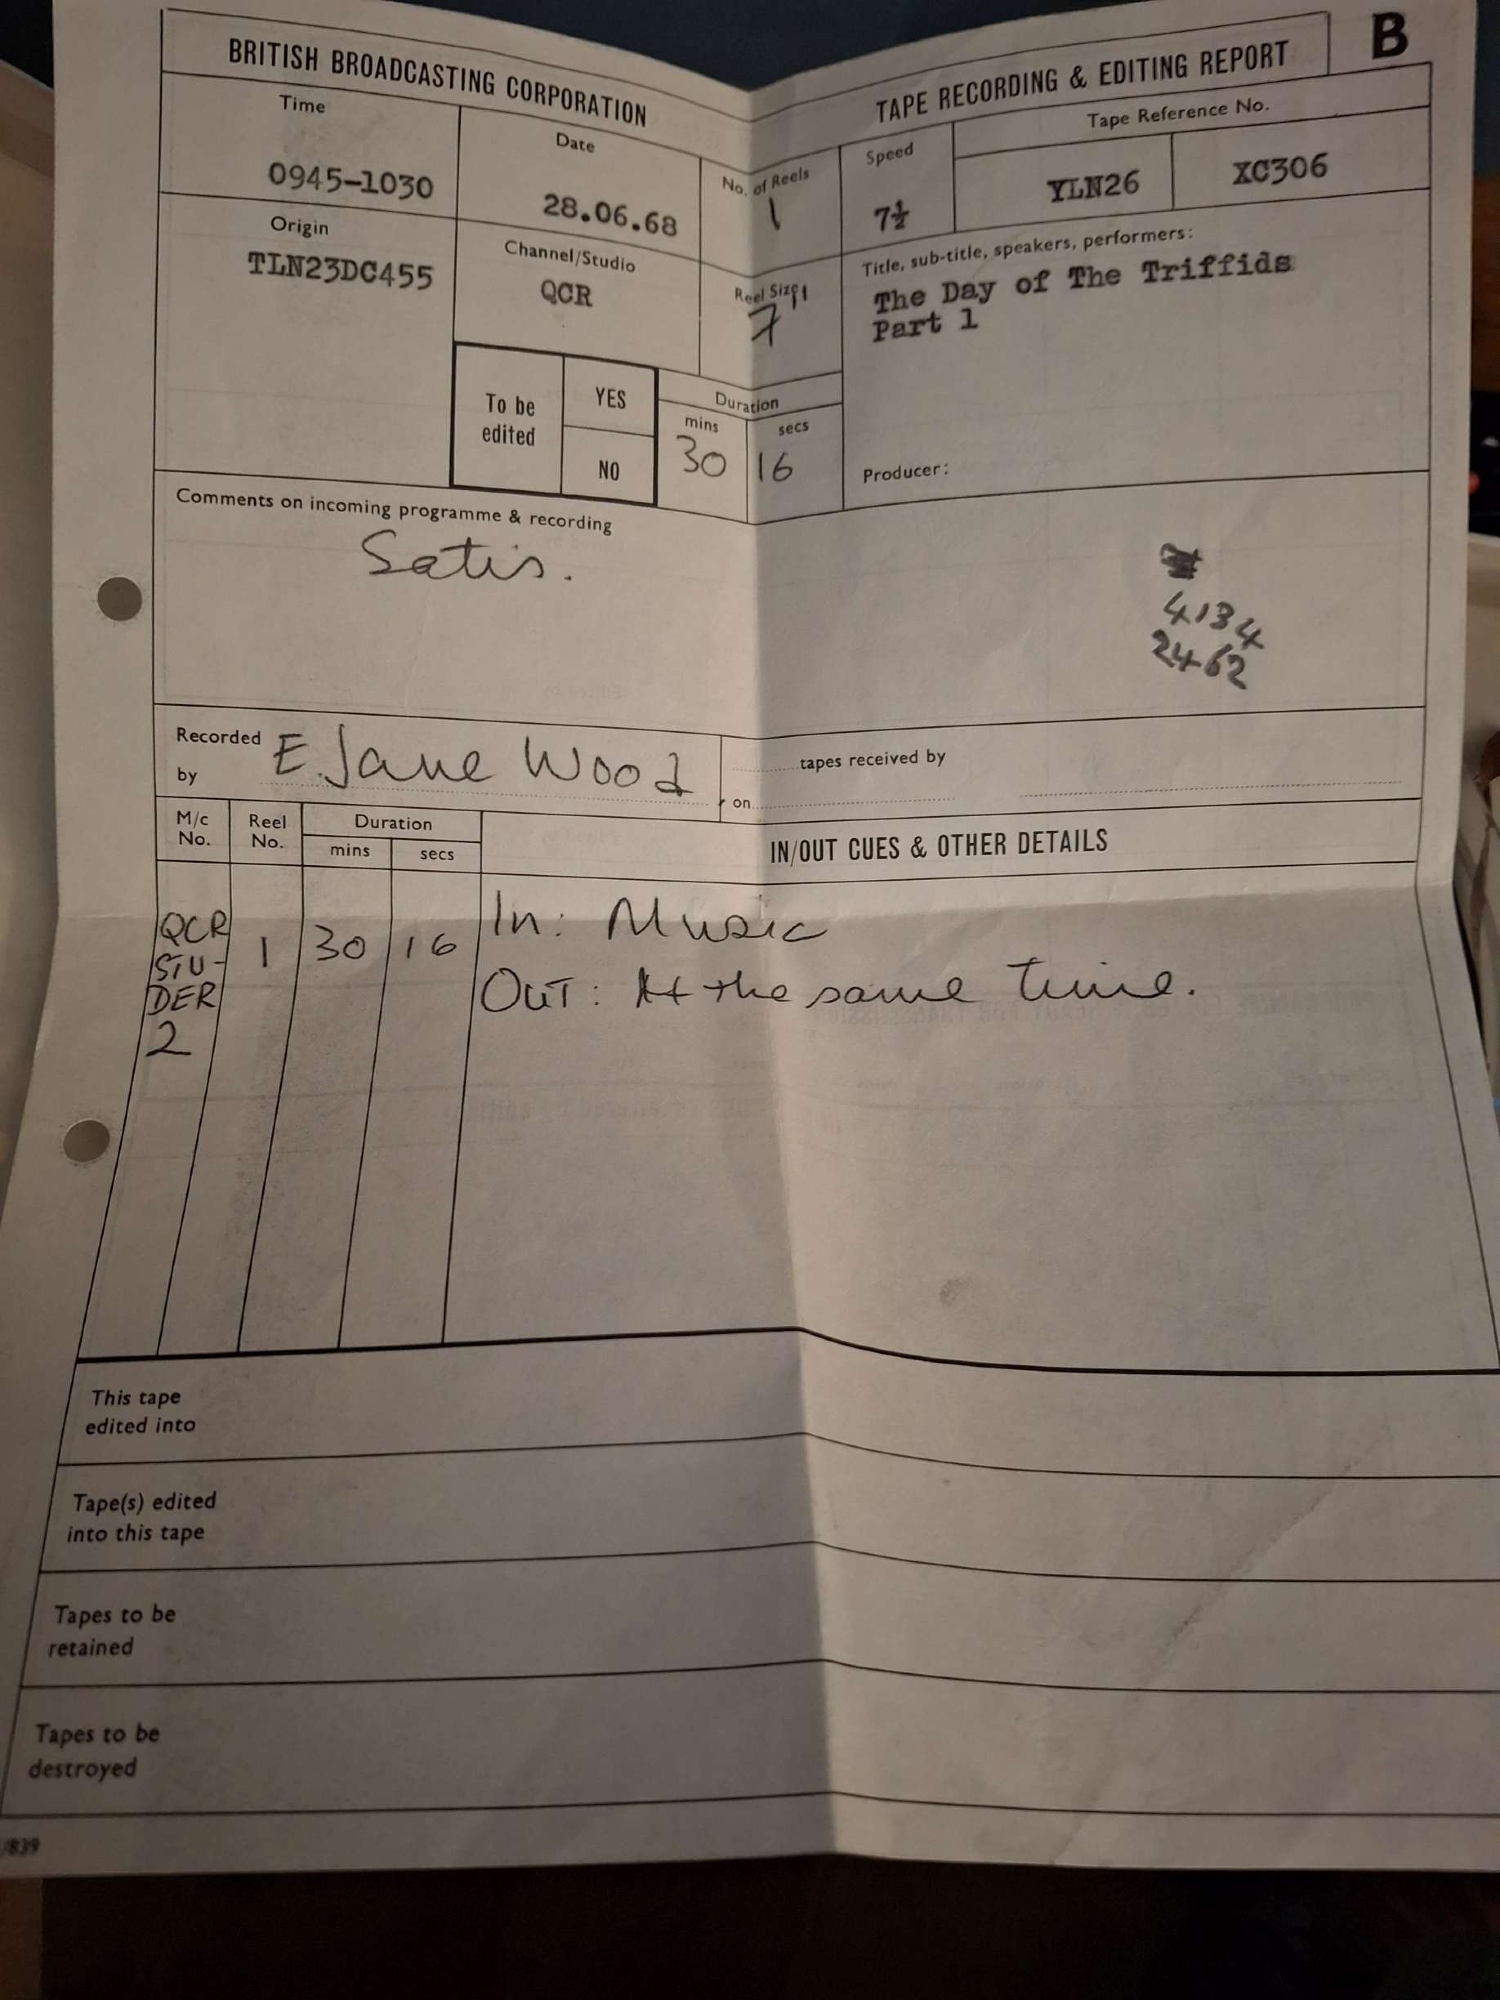 BRITISH BROADCASTING CORPORATION
TAPE RECORDING & EDITING REPORT
B
Time
0945-1030
Date
28.06.68
No. of Reels
1
Speed
7½
Tape Reference No.
YLN26
XC306
Origin
TLN23DC455
Channel/Studio
QCR
Reel Size
7"
Title, sub-title, speakers, performers:
The Day of The Triffids
Part 1
To be
edited
YES
NO
Duration
mins
secs
30
16
Producer:
Comments on incoming programme & recording
Satis.
4134
2462
Recorded
by
E. Jane Wood
tapes received by
on
M/c
No.
Reel
No.
Duration
mins
secs
IN/OUT CUES & OTHER DETAILS
QCR
STU-
DER
2
1
30
16
In: Music
OUT: At the same time.
This tape
edited into
Tape(s) edited
into this tape
Tapes to be
retained
Tapes to be
destroyed
/839